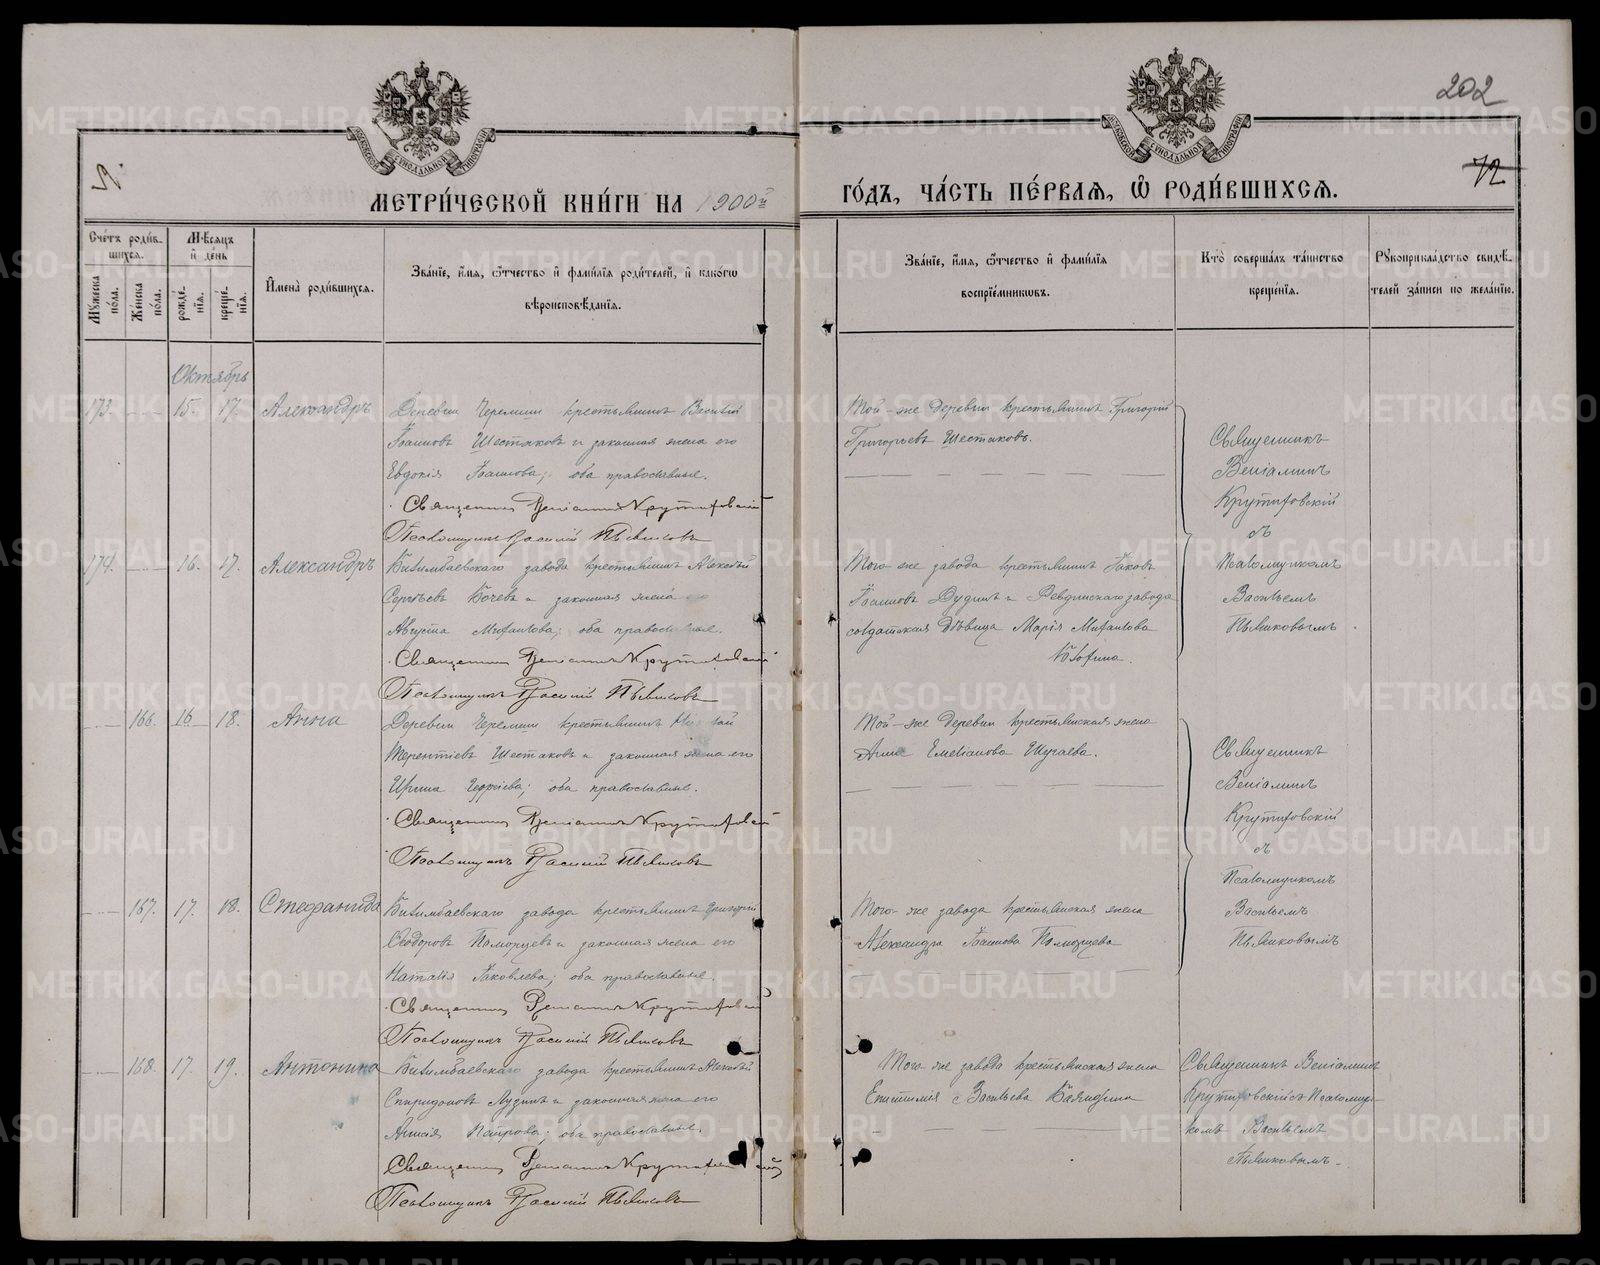 202
72
МЕТРИ́ЧЕСКОЙ КНИ́ГИ НА 1900й
ГО́ДЪ, ЧА́СТЬ ПЕ́РВАѦ, Ѽ РОДИ́ВШИХСѦ.
Сче́тъ роди́вшихсѧ.
Мꙋ́жеска по́ла.
Же́нска по́ла.
Мѣ́сѧцъ и҆ де́нь
рожде́нїѧ.
креще́нїѧ.
И҆мена̀ роди́вшихсѧ.
Зва́нїе, и҆́мѧ, ѻ҆́тчество и҆ фами́лїѧ роди́телей, и҆ како́гѡ
вѣроисповѣ́данїѧ.
Зва́нїе, и҆́мѧ, ѻ҆́тчество и҆ фами́лїѧ
воспрїе́мникѡвъ.
Кто̀ соверша́лъ та́инство
креще́нїѧ.
Рꙋкоприкла́дство свидѣ́-
телей за́писи по жела́нїю.
Октябрь
173. 15. 17. Александръ
Деревни Черемши крестьянинъ Василій
Іоанновъ Шестаковъ и законная жена его
Евдокія Іоаннова; оба православные.
Священникъ Веніаминъ Крутиховскій
Псаломщикъ Василій Пьянковъ
Той-же деревни крестьянинъ Григорій
Григорьевъ Шестаковъ.
Священникъ
Веніаминъ
Крутиховскій
съ
Псаломщикомъ
Васильемъ
Пьянковымъ.
174. 16. 17. Александръ
Билимбаевскаго завода крестьянинъ Алексѣй
Сергѣевъ Бочевъ и законная жена его
Августа Михаилова; оба православные.
Священникъ Веніаминъ Крутиховскій
Псаломщикъ Василій Пьянковъ
Того-же завода крестьянинъ Іаковъ
Іоанновъ Дудинъ и Ревдинскаго завода
солдатская дѣвица Марія Михаилова
166. 16. 18. Анна
Деревни Черемши крестьянинъ
Терентіевъ Шестаковъ и законная жена его
Ирина; оба православные.
Священникъ Веніаминъ Крутиховскій
Псаломщикъ Василій Пьянковъ
Той-же деревни крестьянская жена
Анна Емеліанова Шугаева.
Священникъ
Веніаминъ
Крутиховскій
съ
Псаломщикомъ
Васильемъ
Пьянковымъ
167. 17. 18. Стефанида
Билимбаевскаго завода крестьянинъ Григорій
Ѳеодоровъ Поморцевъ и законная жена его
Наталія Іаковлева; оба православные.
Священникъ Веніаминъ Крутиховскій
Псаломщикъ Василій Пьянковъ
Того-же завода крестьянская жена
Александра Іоаннова Поморцева
168. 17. 19. Антонина
Билимбаевскаго завода крестьянинъ Алексѣй
Спиридоновъ Лузинъ и законная жена его
Анисія Петрова; оба православные.
Священникъ Веніаминъ Крутиховскій
Псаломщикъ Василій Пьянковъ
Того-же завода крестьянская жена
Епистимія Васильева
Священникъ Веніаминъ
Крутиховскій съ Псаломщи-
комъ Васильемъ
Пьянковымъ.
METRIKI.GASO-URAL.RU